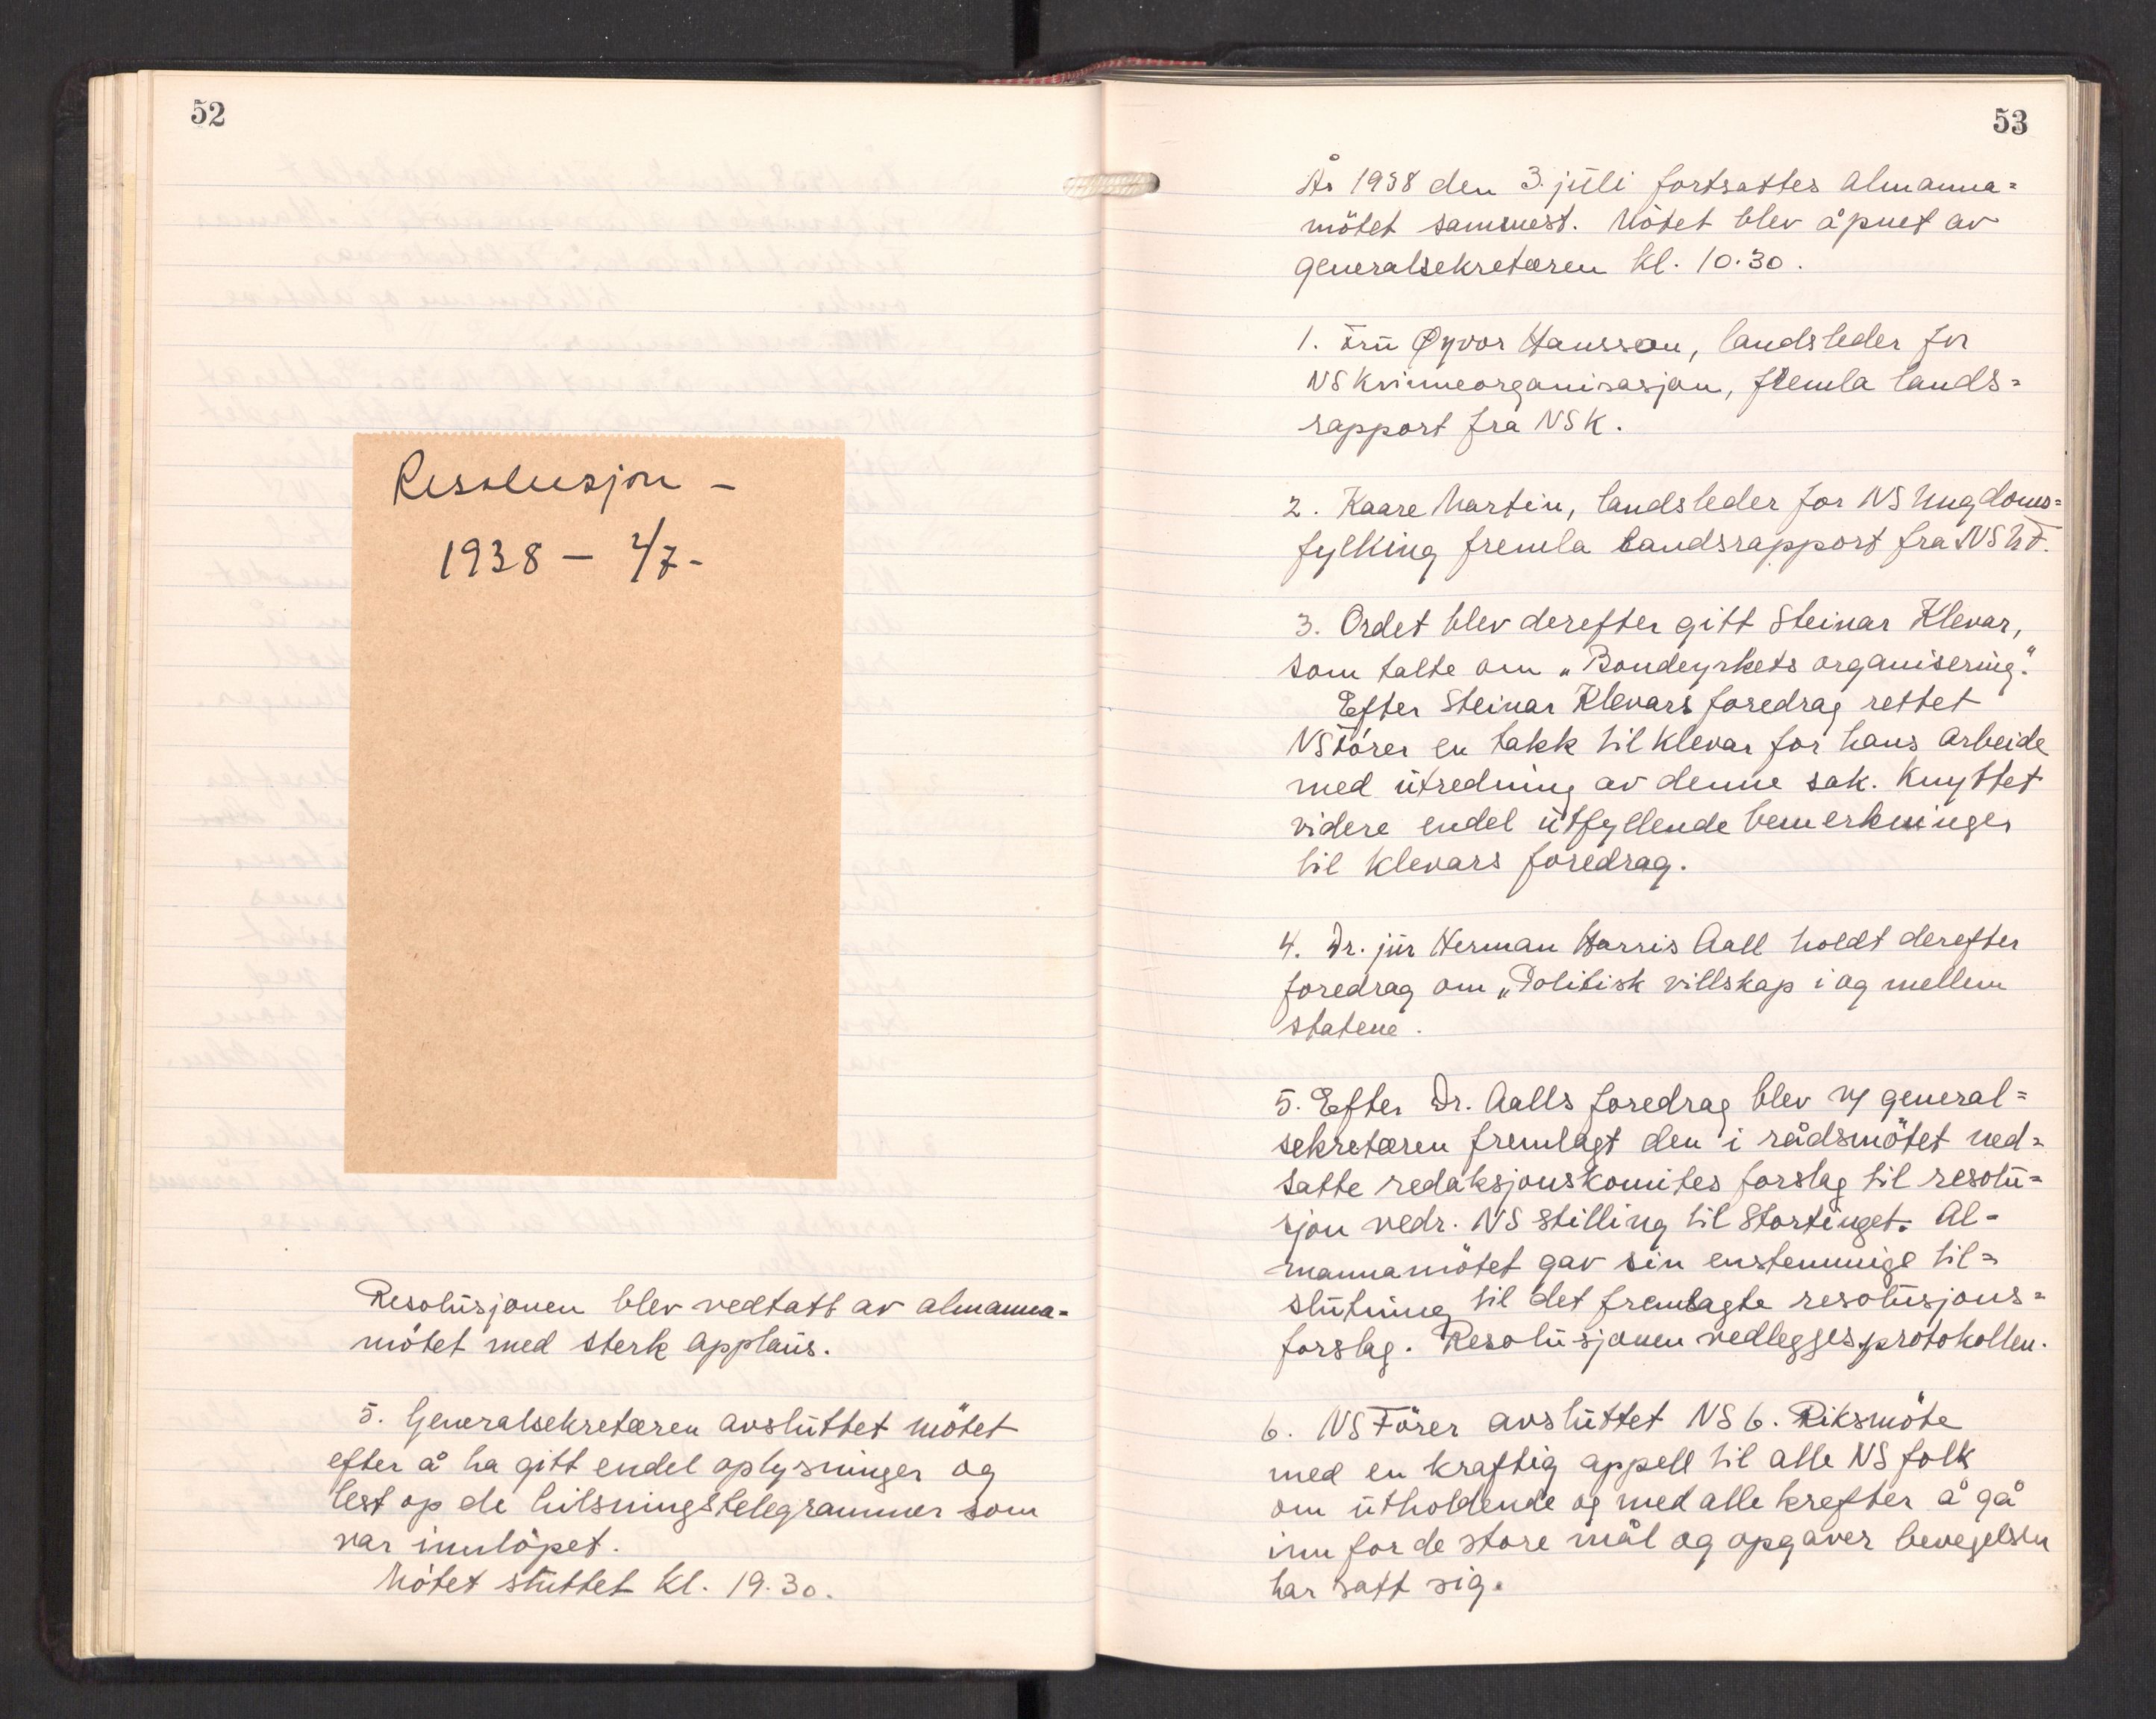 52
Resolusjon -
1938 - 2/7-
Resolusjonen blev vedtatt av almanna=
mötet med sterk applaus.
5. Generalsekretæren avsluttet mötet
efter å ha gitt endel oplysninger og
lest op de hilsningstelegrammer som
var innlöpet.
Mötet sluttet kl. 19.30.
53
År 1938 den 3. juli fortsattes almanna=
mötet sammest. Mötet blev åpnet av
generalsekretæren kl. 10.30.
1. Fru Øyvor Hansson, landsleder for
NS Kvinneorganisasjon, fremla lands=
rapport fra NSK.
2. Kaare Martin, landsleder for NS Ungdoms=
fylking fremla landsrapport fra NSUF.
3. Ordet blev derefter gitt Steinar Klevar,
som talte om „Bondeyrkets organisering."
Efter Steinar Klevars foredrag rettet
NS Förer en takk til Klevar for hans arbeide
med utredning av denne sak. Knyttet
videre endel utfyllende bemerkninger
til Klevars foredrag.
4. Dr. jur Herman Harris Aall holdt derefter
foredrag om „Politisk villskap i og mellem
statene.
5. Efter Dr. Aalls foredrag blev v/ general=
sekretæren fremlagt den i rådsmötet ned=
satte redaksjonskomites forslag til resolu=
sjon vedr. NS stilling til Stortinget. Al-
mannamötet gav sin enstemmige til=
slutning til det fremlagte resolusjons=
forslag. Resolusjonen vedlegges protokollen.
6. NS Förer avsluttet NS 6. Riksmöte
med en kraftig appell til alle NS folk
om utholdende og med alle krefter å gå
inn for de store mål og opgaver bevegelsen
har satt sig.